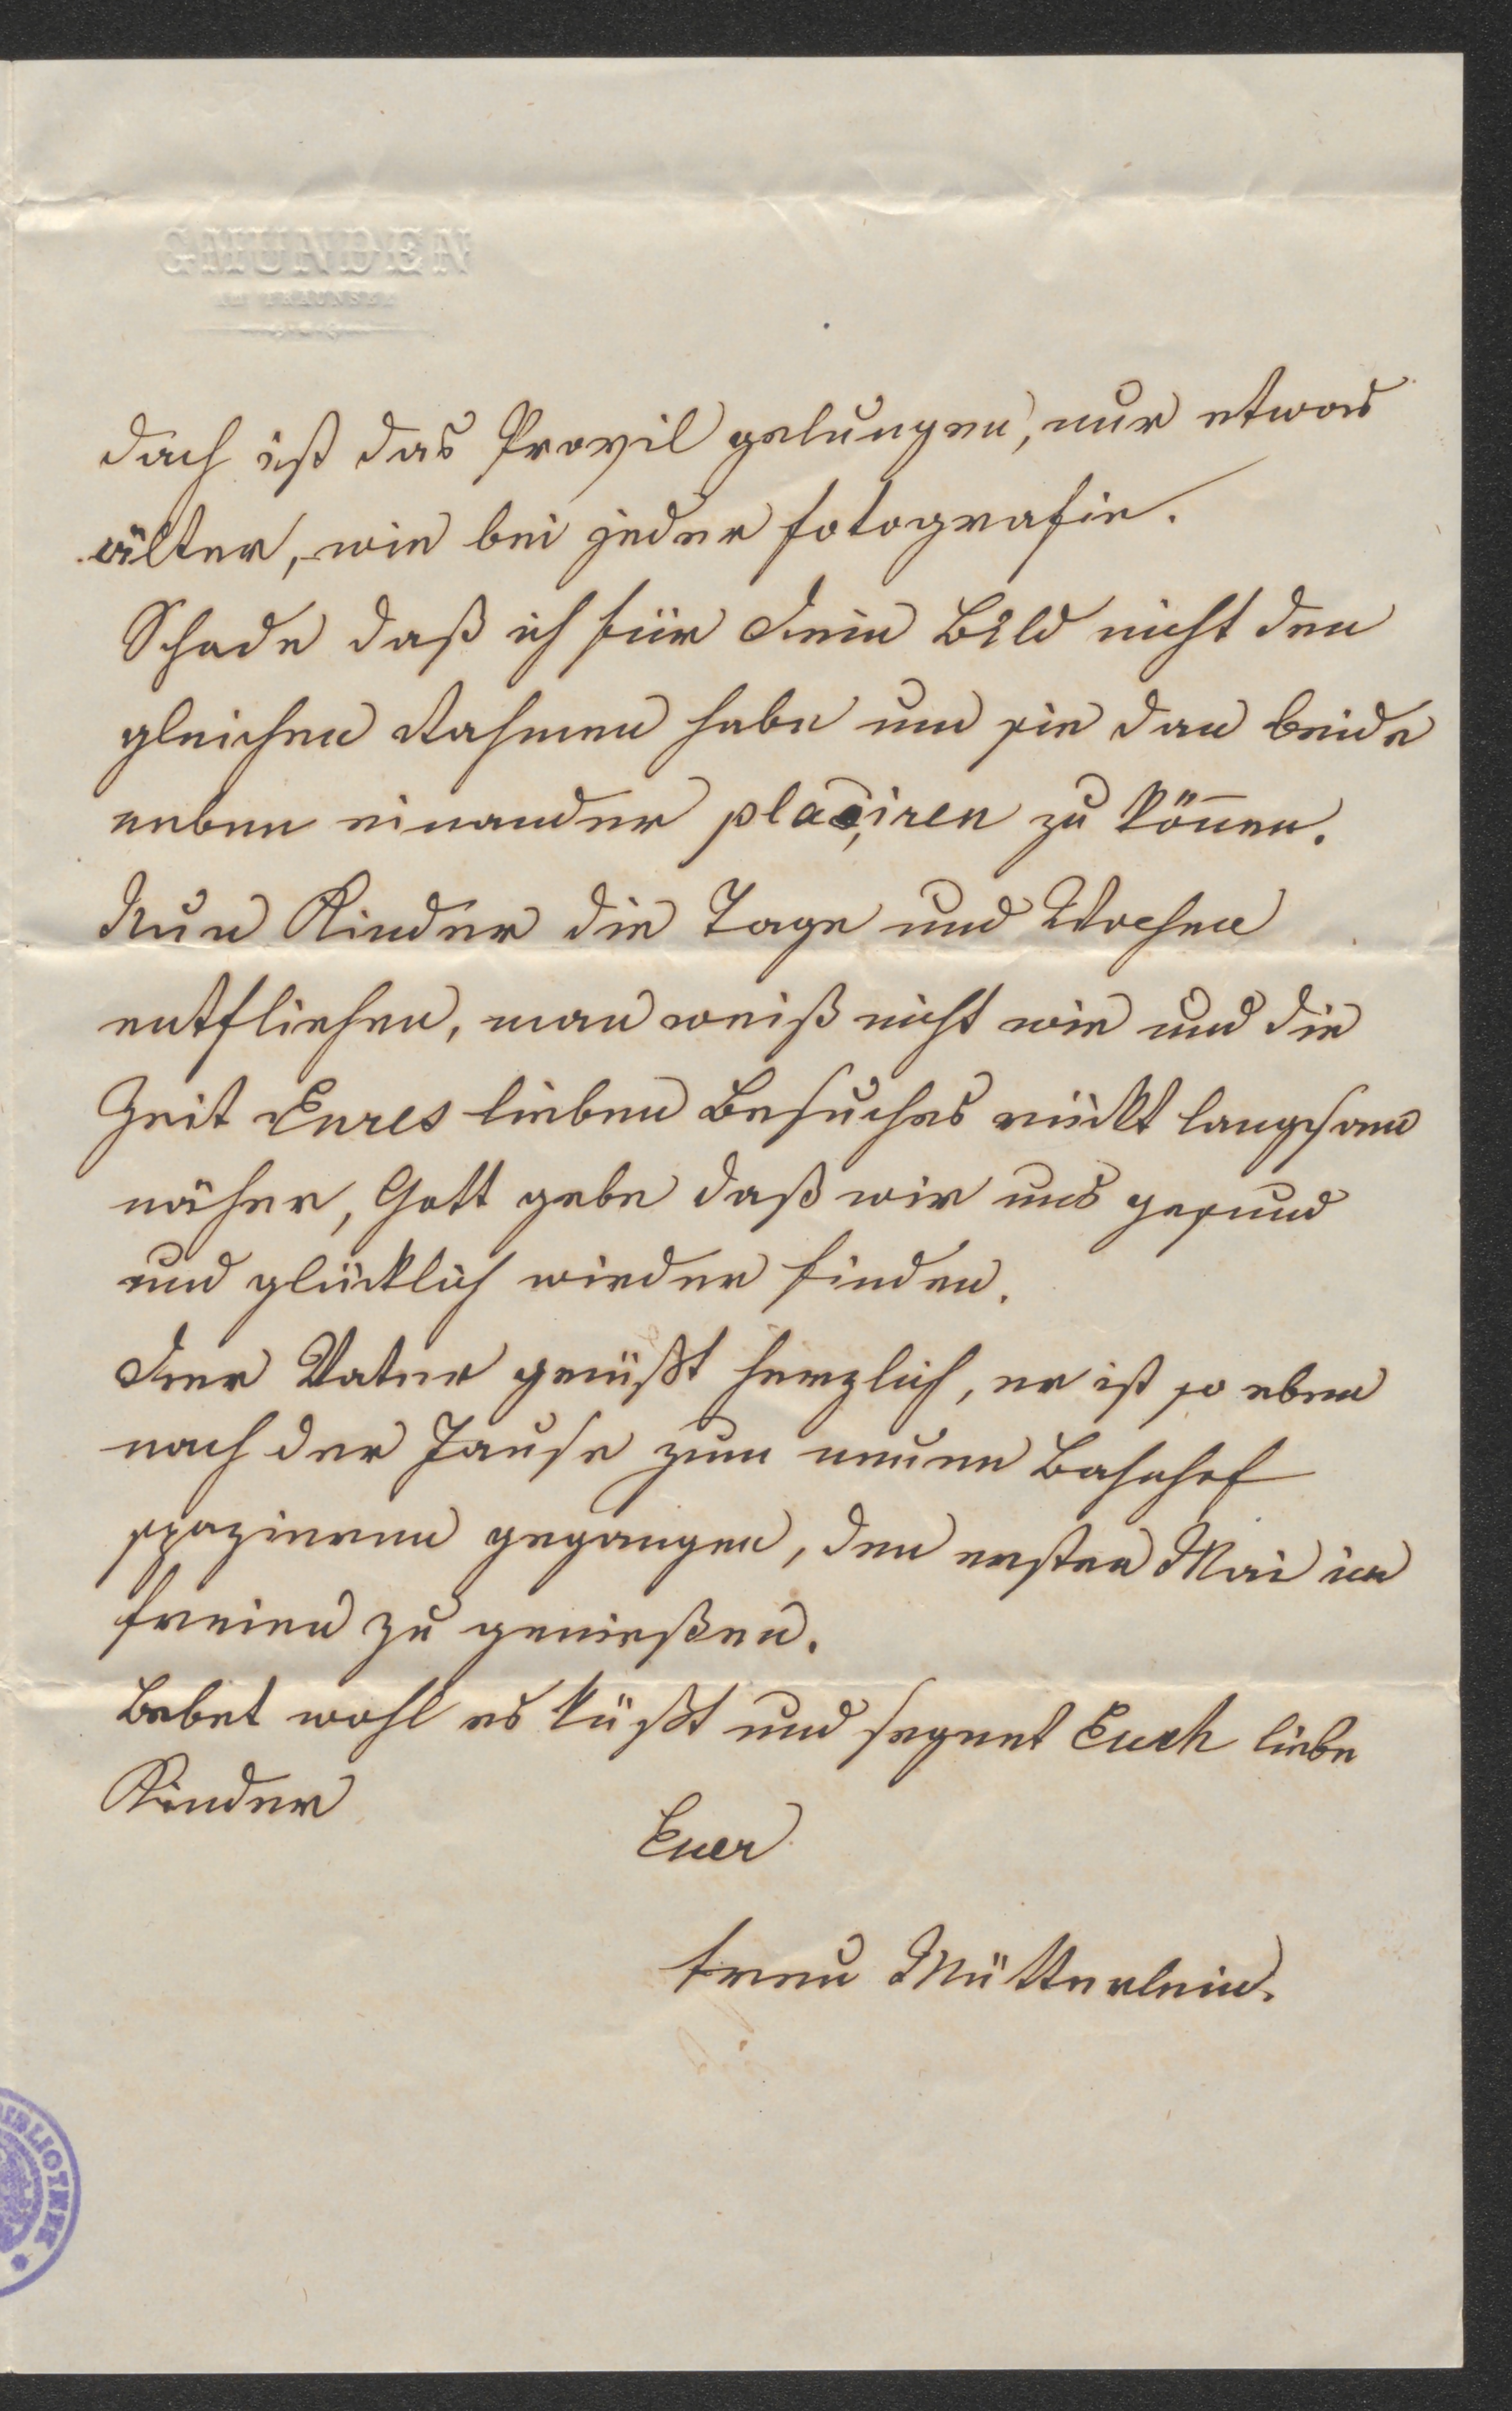 GMUNDEN
AM TRAUNSEE
doch ist das Provil gelungen, nur etwas
älter, wie bei jeder Fotografie.
Schade daß ich für Dein Bild nicht den
gleichen Rahmen habe um sie dan beide
neben einander plaçiren zu kön̅en.
Nun Kinder die Tage und Wochen
entfliehen, man weiß nicht wie und die
Zeit Eures lieben Besuches rückt langsam
näher, Gott gebe daß wir uns gesund
und glücklich wieder finden.
Der Vater grüßt herzlich, er ist so eben
nach der Jause zum neuen Bahnhof
spazieren gegangen, den ersten Mai im
freien zu genießen.
Lebet wohl es küßt und segnet Euch liebe
Kinder
Euer
treu Mütterlein.
BIBLIOTHEK